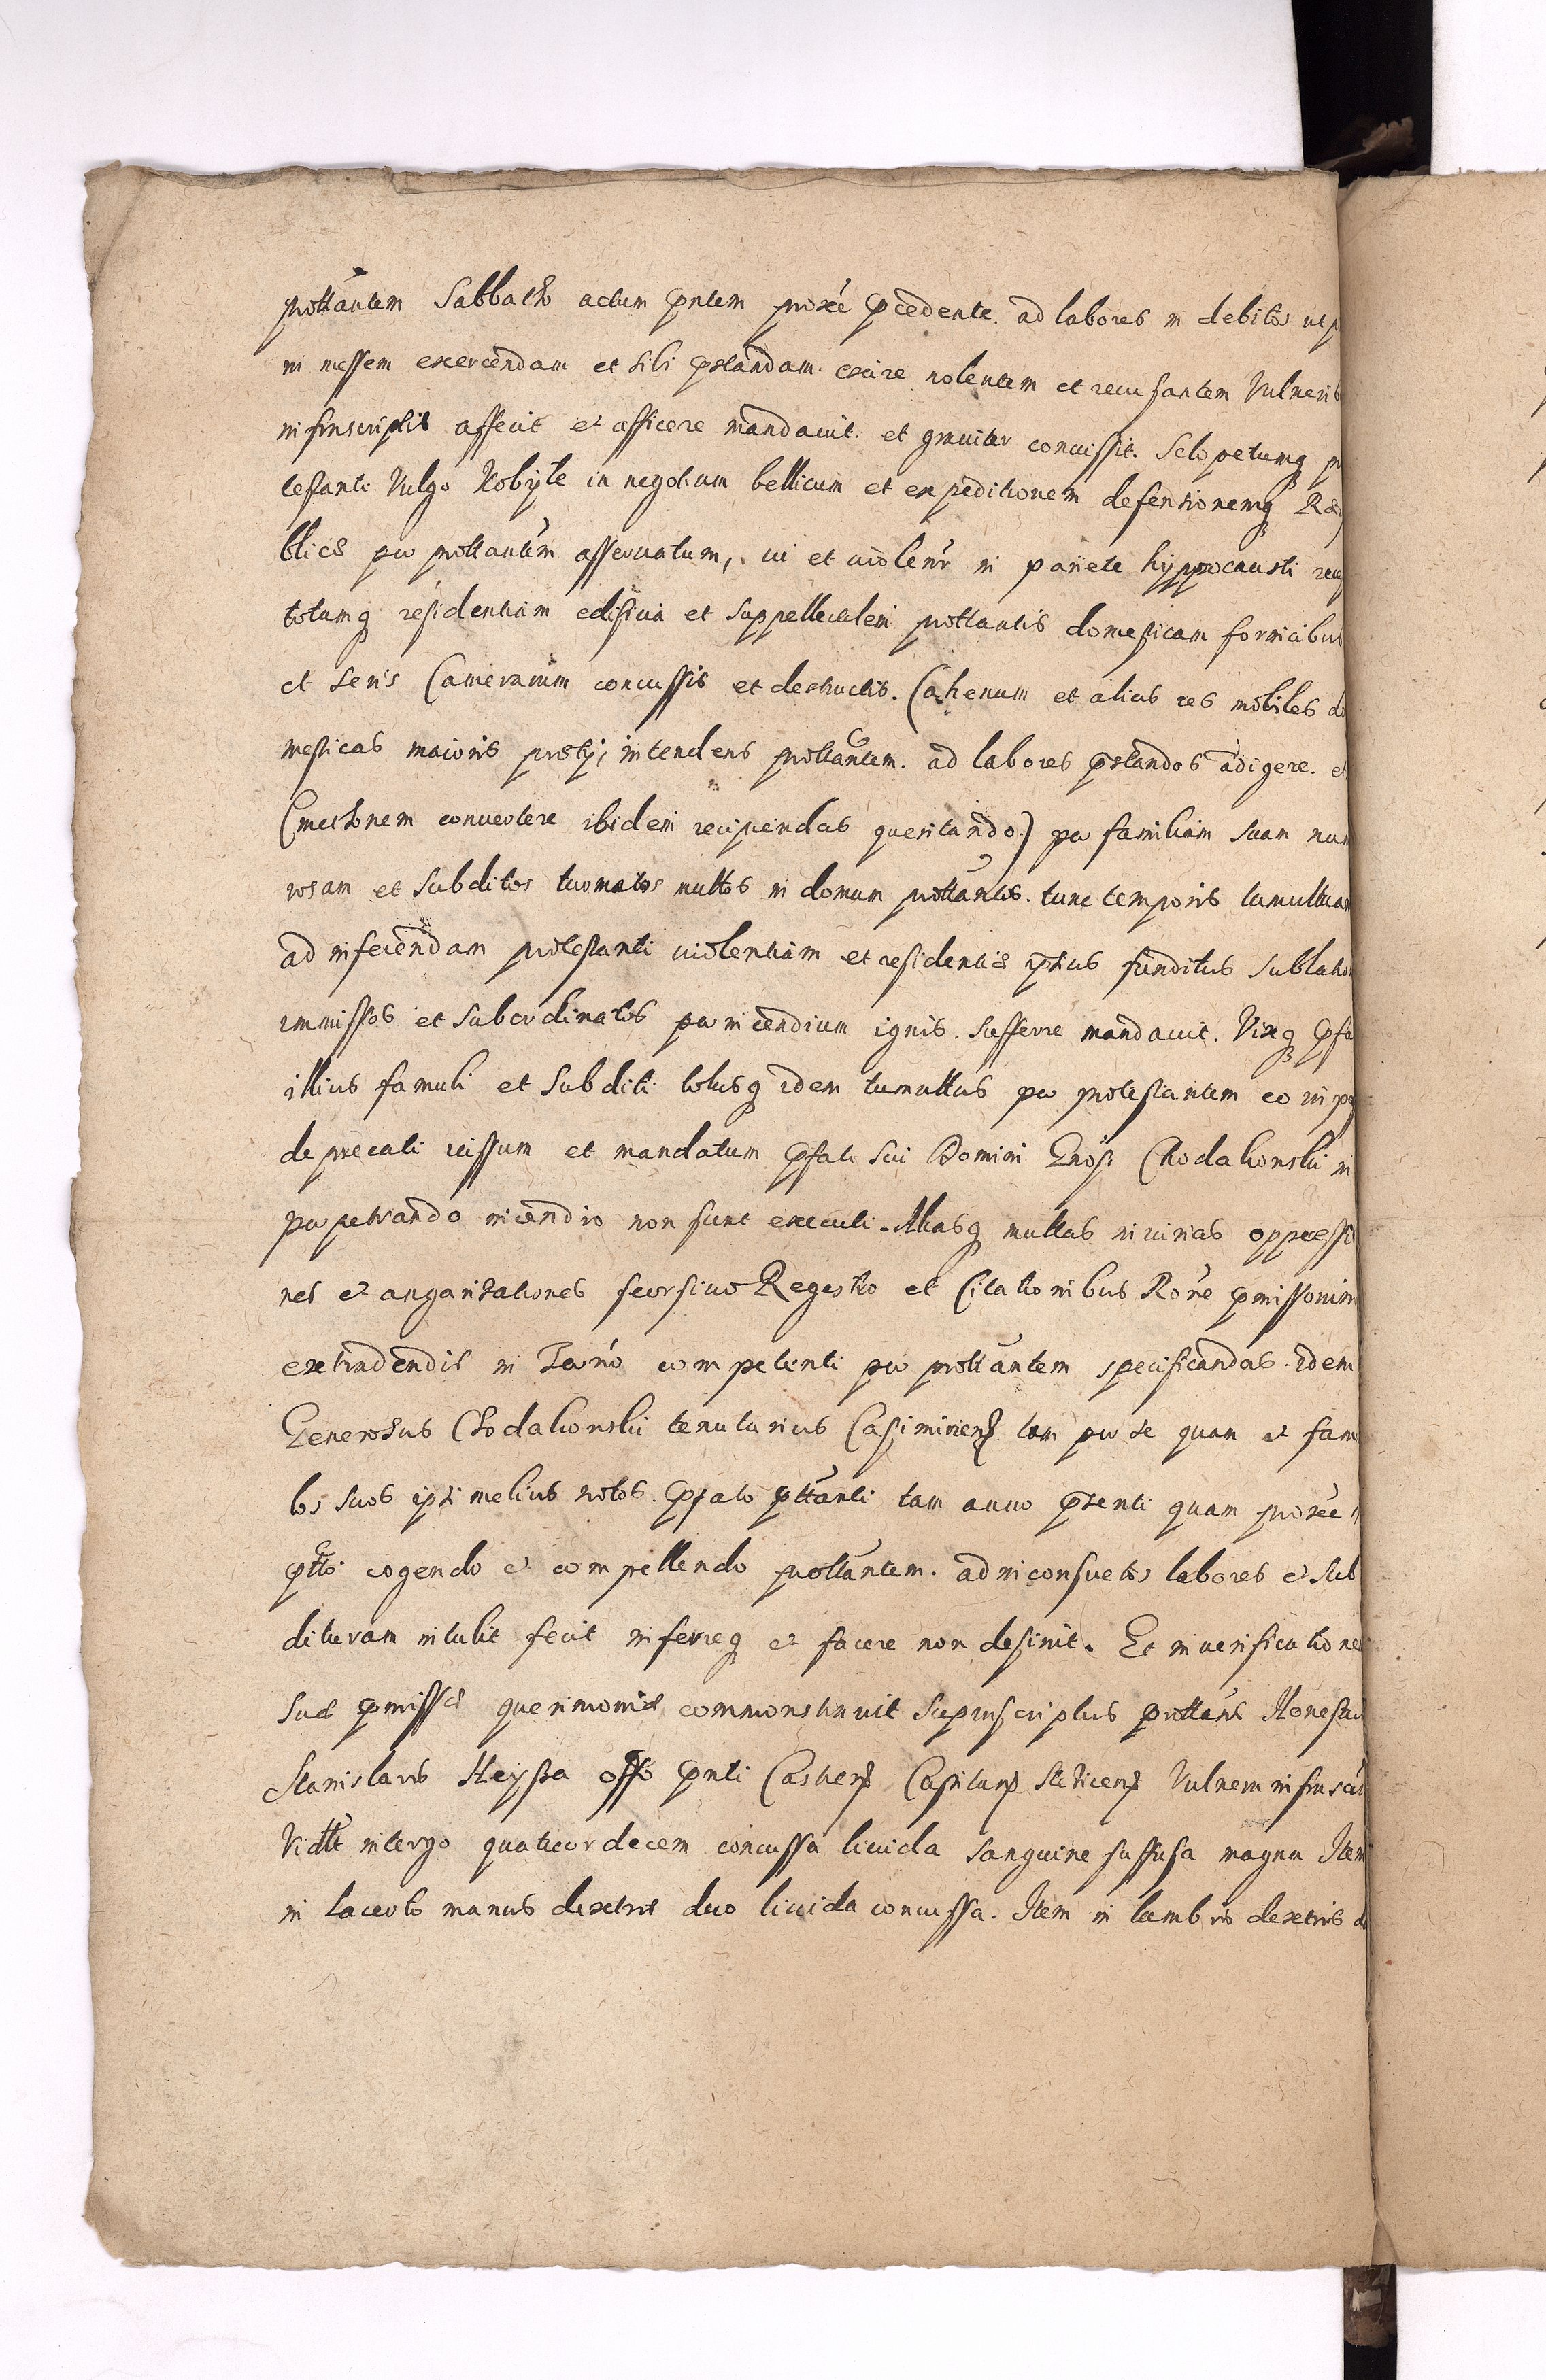 prottantem Sabbatho actum pntem proxe pcedente. ad labores in debitos
in messem exercendam et sibi pstandam. exire nolentem et recusantem Vulnerib
infrascriptis affecit et afficere mandavit. et graviter concussit. Sclopetumq
testanti Vulgo Kobyłe in negotium bellicum et expeditionem defensionemq
blicæ per prottantem asservatum, vi et violentr in pariete hyppocausti
totamq residentiam edificia et suppellectilem prottantis domesticam fornicibus
et seris Camerarum concussis et destructis. (ahenum et alias res mobiles do
mesticas maioris prety, intendens prottantem. ad labores pstandos adigere. et
Cmethonem convertere ibidem recipiendas queritando.) per familiam suam nu
rosam et subditos multos in domum prottantis. tunc temporis
ad inferendam protestanti violentiam et residentiæ ipsius funditus
immissos et subordinatos per incendium ignis. sufferre mandavit. Vixq
illius famuli et subditi totusq idem tumultus per protestantem eo
deprecati iussum et mandatum pfati sui Domini Gnosi Chodakowski in
perpetrando incendio non sunt executi. Aliasq multas iniurias oppressio
nes et angarisationes seorsivo Regestro et Citationibus Rone pmissorum
extradendis in competenti per prottantem specificandas. idem
Generosus Chodakowski tenutarius Casimiriens tam per se quam et famu
los suos ipsi melius notos. pfato pttanti tam anno psenti quam proxe
ptto cogendo et compellendo prottantem. ad inconsuetos labores et sub
dituram intulit fecit inferreq et facere non desinit. Et in verificatione
suæ pmissæ querimoniæ commonstravit suprascriptus prottans Honestus
Stanislaus Heysza offo pnti Castren Capitan Vulnera infrascr
Vidtt in tergo quatuordecem concussa livida sanguine suffusa magna Item
in lacerto manus dextræ duo livida concussa. Item in lumbis dextris